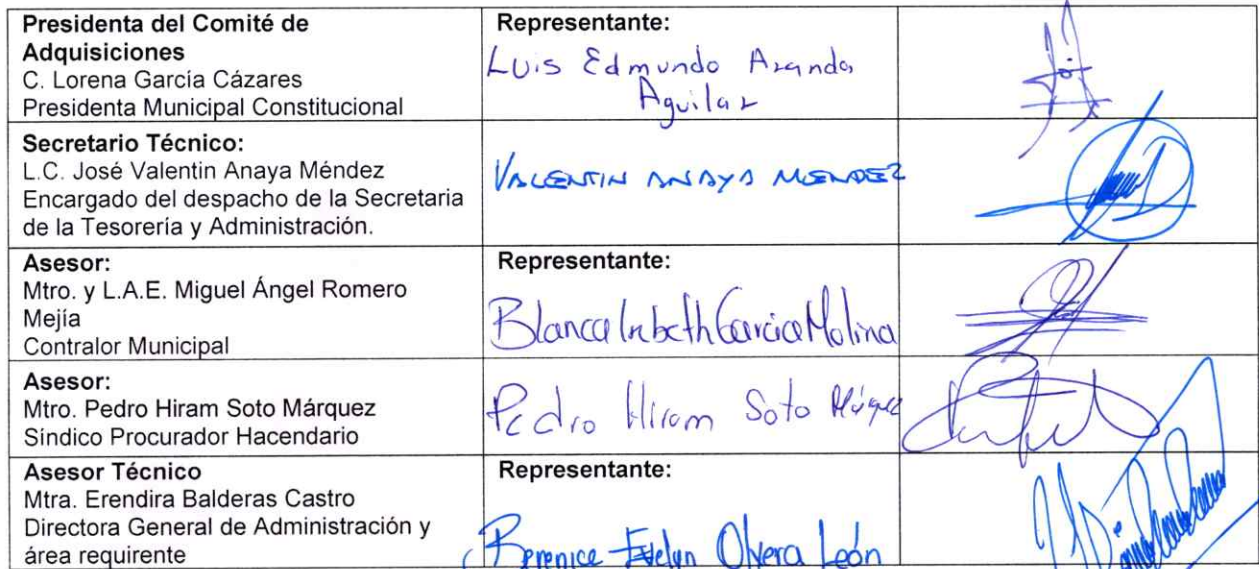 Presidenta del Comité de
Adquisiciones
C. Lorena García Cázares
Presidenta Municipal Constitucional
Representante:
Luis Edmundo Aranda
Aguilar
Secretario Técnico:
L.C. José Valentin Anaya Méndez
Encargado del despacho de la Secretaria
de la Tesorería y Administración.
VALENTIN ANAYA MENDEZ
Asesor:
Mtro. y L.A.E. Miguel Ángel Romero
Mejía
Contralor Municipal
Representante:
Blanca Garcia Molina
Asesor:
Mtro. Pedro Hiram Soto Márquez
Síndico Procurador Hacendario
Pedro Hiram Soto Márquez
Asesor Técnico
Mtra. Erendira Balderas Castro
Directora General de Administración y
área requirente
Representante:
Berenice Evelyn Olvera León